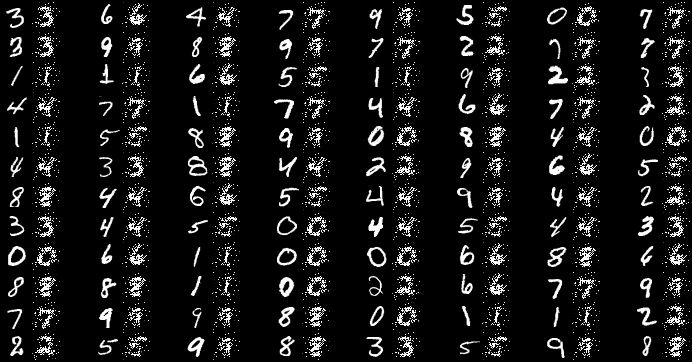 3 3 6 6 4 4 7 7 9 9 5 5 0 0 7 7
3 3 9 9 8 8 9 9 7 7 2 2 7 7 7 7
1 1 1 1 6 6 5 5 1 1 9 9 2 2 3 3
4 4 7 7 1 1 7 7 4 4 6 6 7 7 2 2
1 1 5 5 8 8 9 9 0 0 8 8 4 4 0 0
4 4 3 3 8 8 4 4 2 2 9 9 6 6 5 5
8 8 4 4 6 6 5 5 4 4 9 9 4 4 2 2
3 3 4 4 5 5 0 0 4 4 5 5 4 4 3 3
0 0 6 6 1 1 0 0 0 0 6 6 8 8 6 6
8 8 8 8 1 1 0 0 2 2 6 6 7 7 9 9
7 7 9 9 9 9 8 8 0 0 1 1 1 1 2 2
2 2 5 5 9 9 8 8 3 3 5 5 9 9 8 8